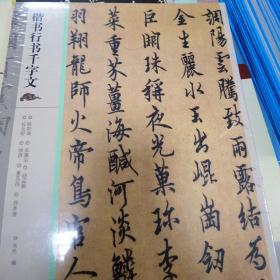 調陽雲騰致雨露結為
金生麗水玉出崐崗釰
巨闕珠稱夜光菓珎李
菜重芥薑海鹹河淡鱗
羽翔龍師火帝鳥官人
楷书行书千字文